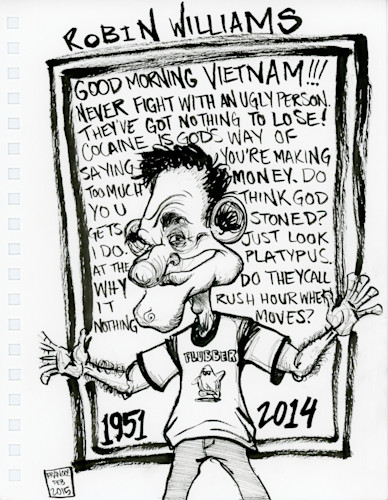 ROBIN WILLIAMS
GOOD MORNING VIETNAM!!!
NEVER FIGHT WITH AN UGLY PERSON.
THEY'VE GOT NOTHING TO LOSE!
COCAINE IS GODS WAY OF
SAYING YOU'RE MAKING
TOO MUCH MONEY. DO
YOU THINK GOD
GETS STONED?
I DO. JUST LOOK
AT THE PLATYPUS.
WHY DO THEY CALL
IT RUSH HOUR WHEN
NOTHING MOVES?
FLUBBER
1951 2014
FEB
2015